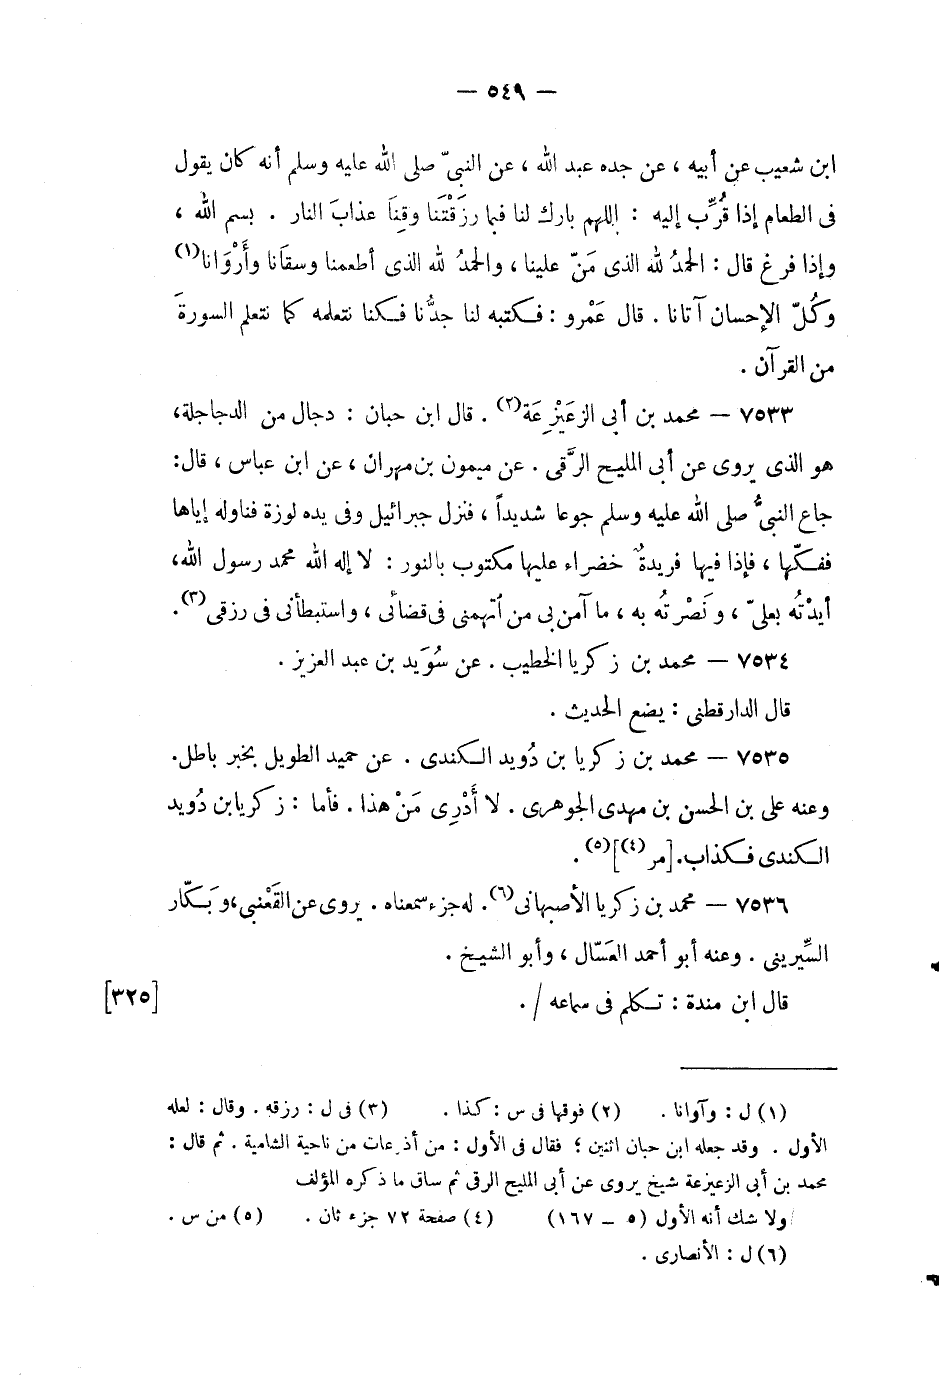 — ٥٤٩ —
ابن شعيب عن أبيه ، عن جده عبد الله ، عن النبيّ صلى الله عليه وسلم أنه كان يقول
فى الطعام إذا قُرِّب إليه : اللهم بارك لنا فيما رزَقْتَنا وقِنَا عذابَ النار . بسم الله ،
وإذا فرغ قال : الحمدُ لله الذى مَنّ علينا ، والحمدُ لله الذى أطعمنا وسقَانا وأَرْوَانا(١)
وكُلّ الإحسان آتانا . قال عَمْرو : فكتبه لنا جدُّنا فكنا نتعلمه كما نتعلم السورةَ
من القرآن .
٧٥٣٣ — محمد بن أبى الزعَيْزِعَة(٢) . قال ابن حبان : دجال من الدجاجلة،
هو الذى يروى عن أبى المليح الرَّقى . عن ميمون بن مهران ، عن ابن عباس ، قال:
جاع النبىُّ صلى الله عليه وسلم جوعا شديداً ، فنزل جبرائيل وفى يده لوزة فناوله إياها
ففكّها ، فإذا فيها فريدةٌ خضراء عليها مكتوب بالنور : لا إله الله محمد رسول الله،
أيدْتُه بعلىّ ، ونَصْرتُه به ، ما آمن بى من اتّهمنى فى قضائى ، واستبطأنى فى رزقى(٣).
٧٥٣٤ — محمد بن زكريا الخطيب . عن سُوَيد بن عبد العزيز .
قال الدارقطنى : يضع الحديث .
٧٥٣٥ — محمد بن زكريا بن دُويد الكندى . عن حميد الطويل بخبر باطل.
وعنه على بن الحسن بن مهدى الجوهرى . لا أَدْرِى مَنْ هذا . فأما : زكريا بن دُويد
الكندى فكذاب. [مر(٤)](٥) .
٧٥٣٦ — محمد بن زكريا الأصبهانى(٦). له جزء سمعناه . يروى عن القَعْنبى، وبَكّار
السِّيرينى . وعنه أبو أحمد العَسّال ، وأبو الشيخ .
قال ابن مندة : تكلم فى سماعه / . [٣٢٥]
(١) ل : وآوانا . (٢) فوقها فى س : كذا . (٣) فى ل : رزقه . وقال : لعله
الأول . وقد جعله ابن حبان اثنين ؛ فقال فى الأول : من أذرعات من ناحية الشامية . ثم قال :
محمد بن أبى الزعيزعة شيخ يروى عن أبى المليح الرقى ثم ساق ما ذكره المؤلف
ولا شك أنه الأول (٥ – ١٦٧) (٤) صفحة ٧٢ جزء ثان . (٥) من س .
(٦) ل : الأنصارى .